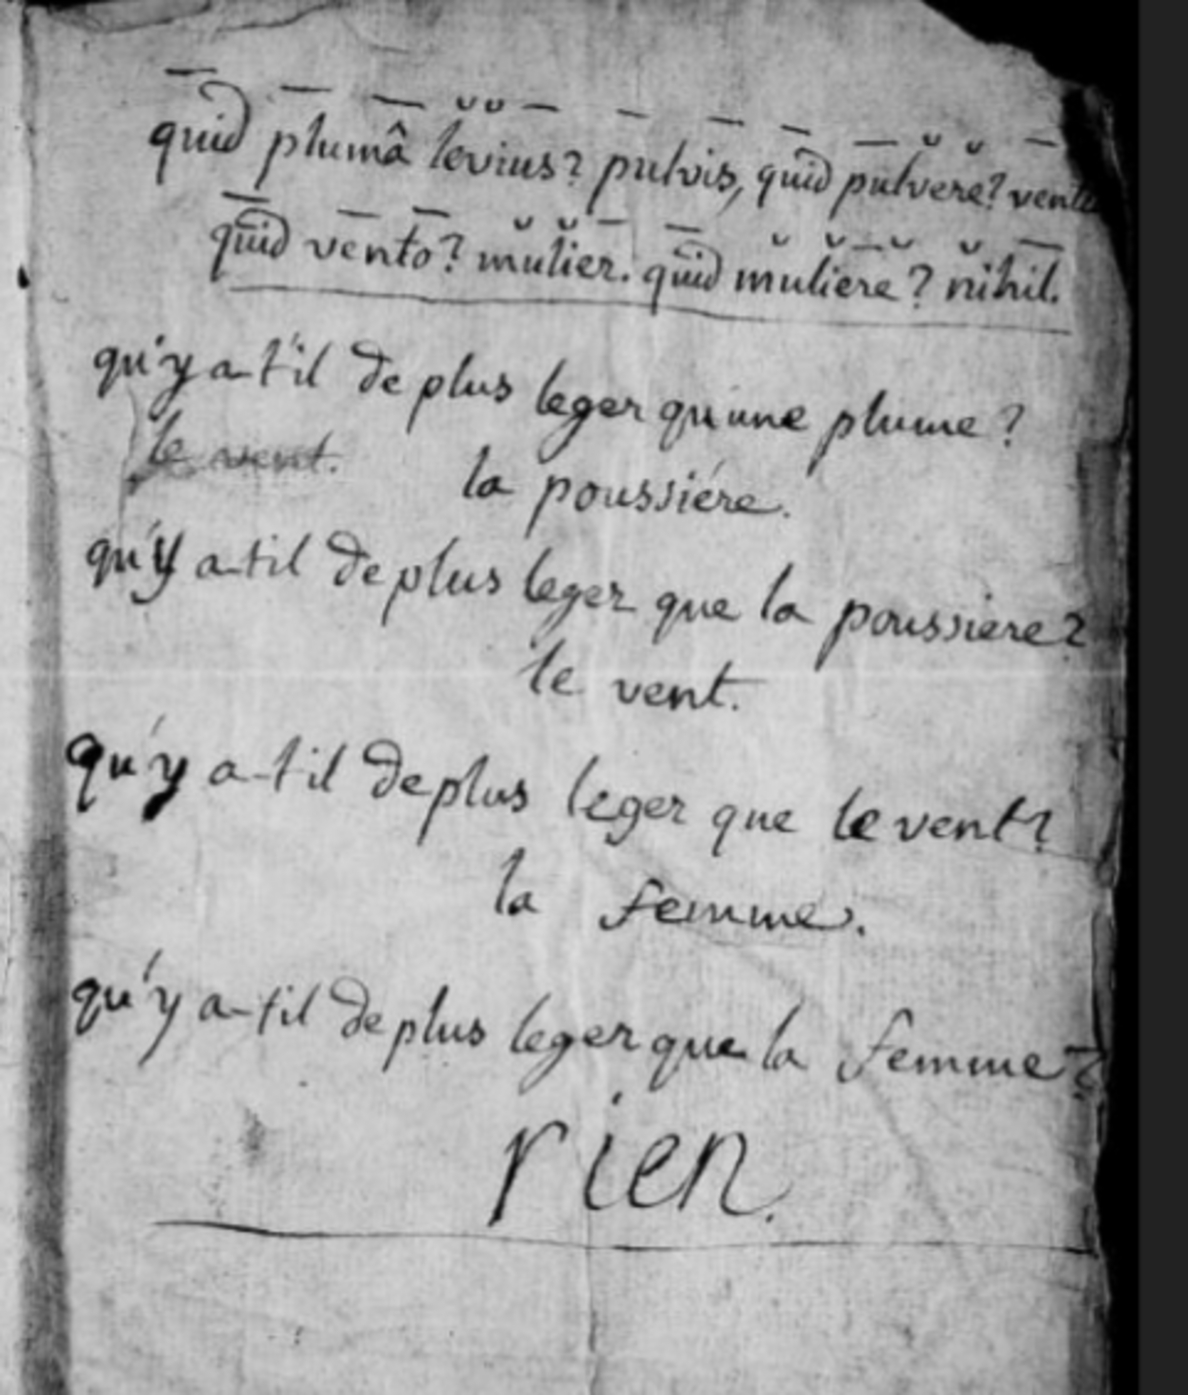 quid plumâ levius? pulvis, quid pulvere? ventu
quid vento? mulier. quid muliere? nihil.
qu'y a-t'il de plus leger qu'une plume?
le vent. la poussiére.
qu'y a-til de plus leger que la poussiere?
le vent.
qu'y a-t'il de plus leger que le vent?
la femme.
qu'y a-til de plus leger que la femme?
rien.